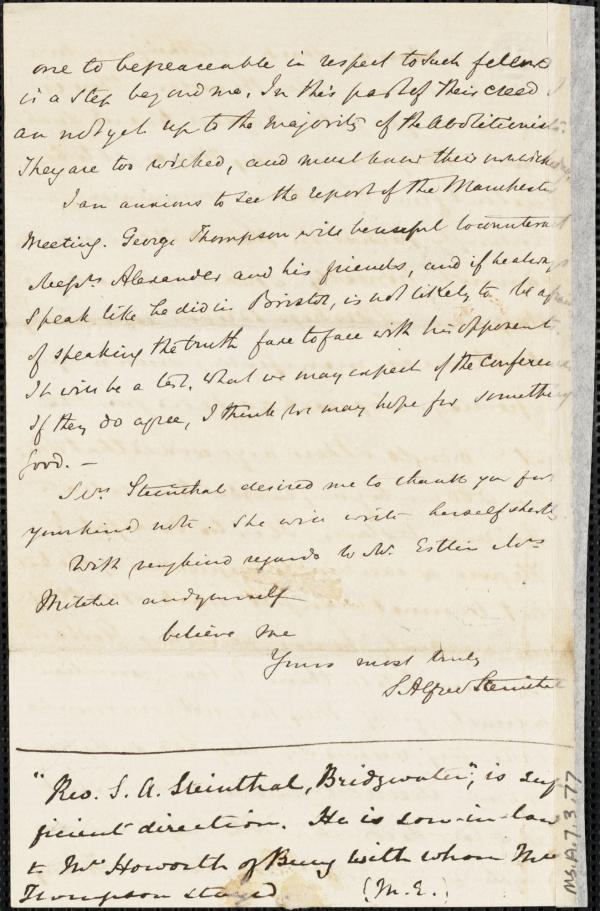 one to be peaceable in respect to such fellows
is a step beyond me. In this part of their creed I
am not yet up to the majority of the Abolitionists.
They are too wicked, and must know their wickedness.
I am anxious to see the report of the Manchester
Meeting. George Thompson will be useful to counteract
Messrs Alexander and his friends, and if he always
speak like he did in Bristol, is not likely to be afraid
of speaking the truth face to face with his opponents.
It will be a test, what we may expect of the Conference
If they do agree, I think we may hope for something
good. —
Mrs Steinthal desired me to thank you for
your kind note. She will write herself shortly.
With very kind regards to Mr. Estlin Mrs
Mitchell and yourself
believe me
Yours most truly
S Alfred Steinthal
"Rev. S. A. Steinthal, Bridgwater", is suf
ficient direction. He is son-in-law
to Mr Howorth of Bury with whom Mr
Thompson stayed (M. E.)
Ms. A. 7. 3. 77